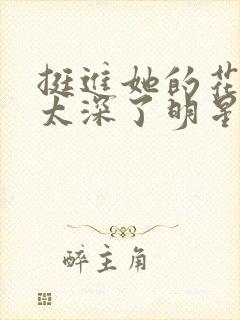 挺进她的花
太深了明星
醉主角